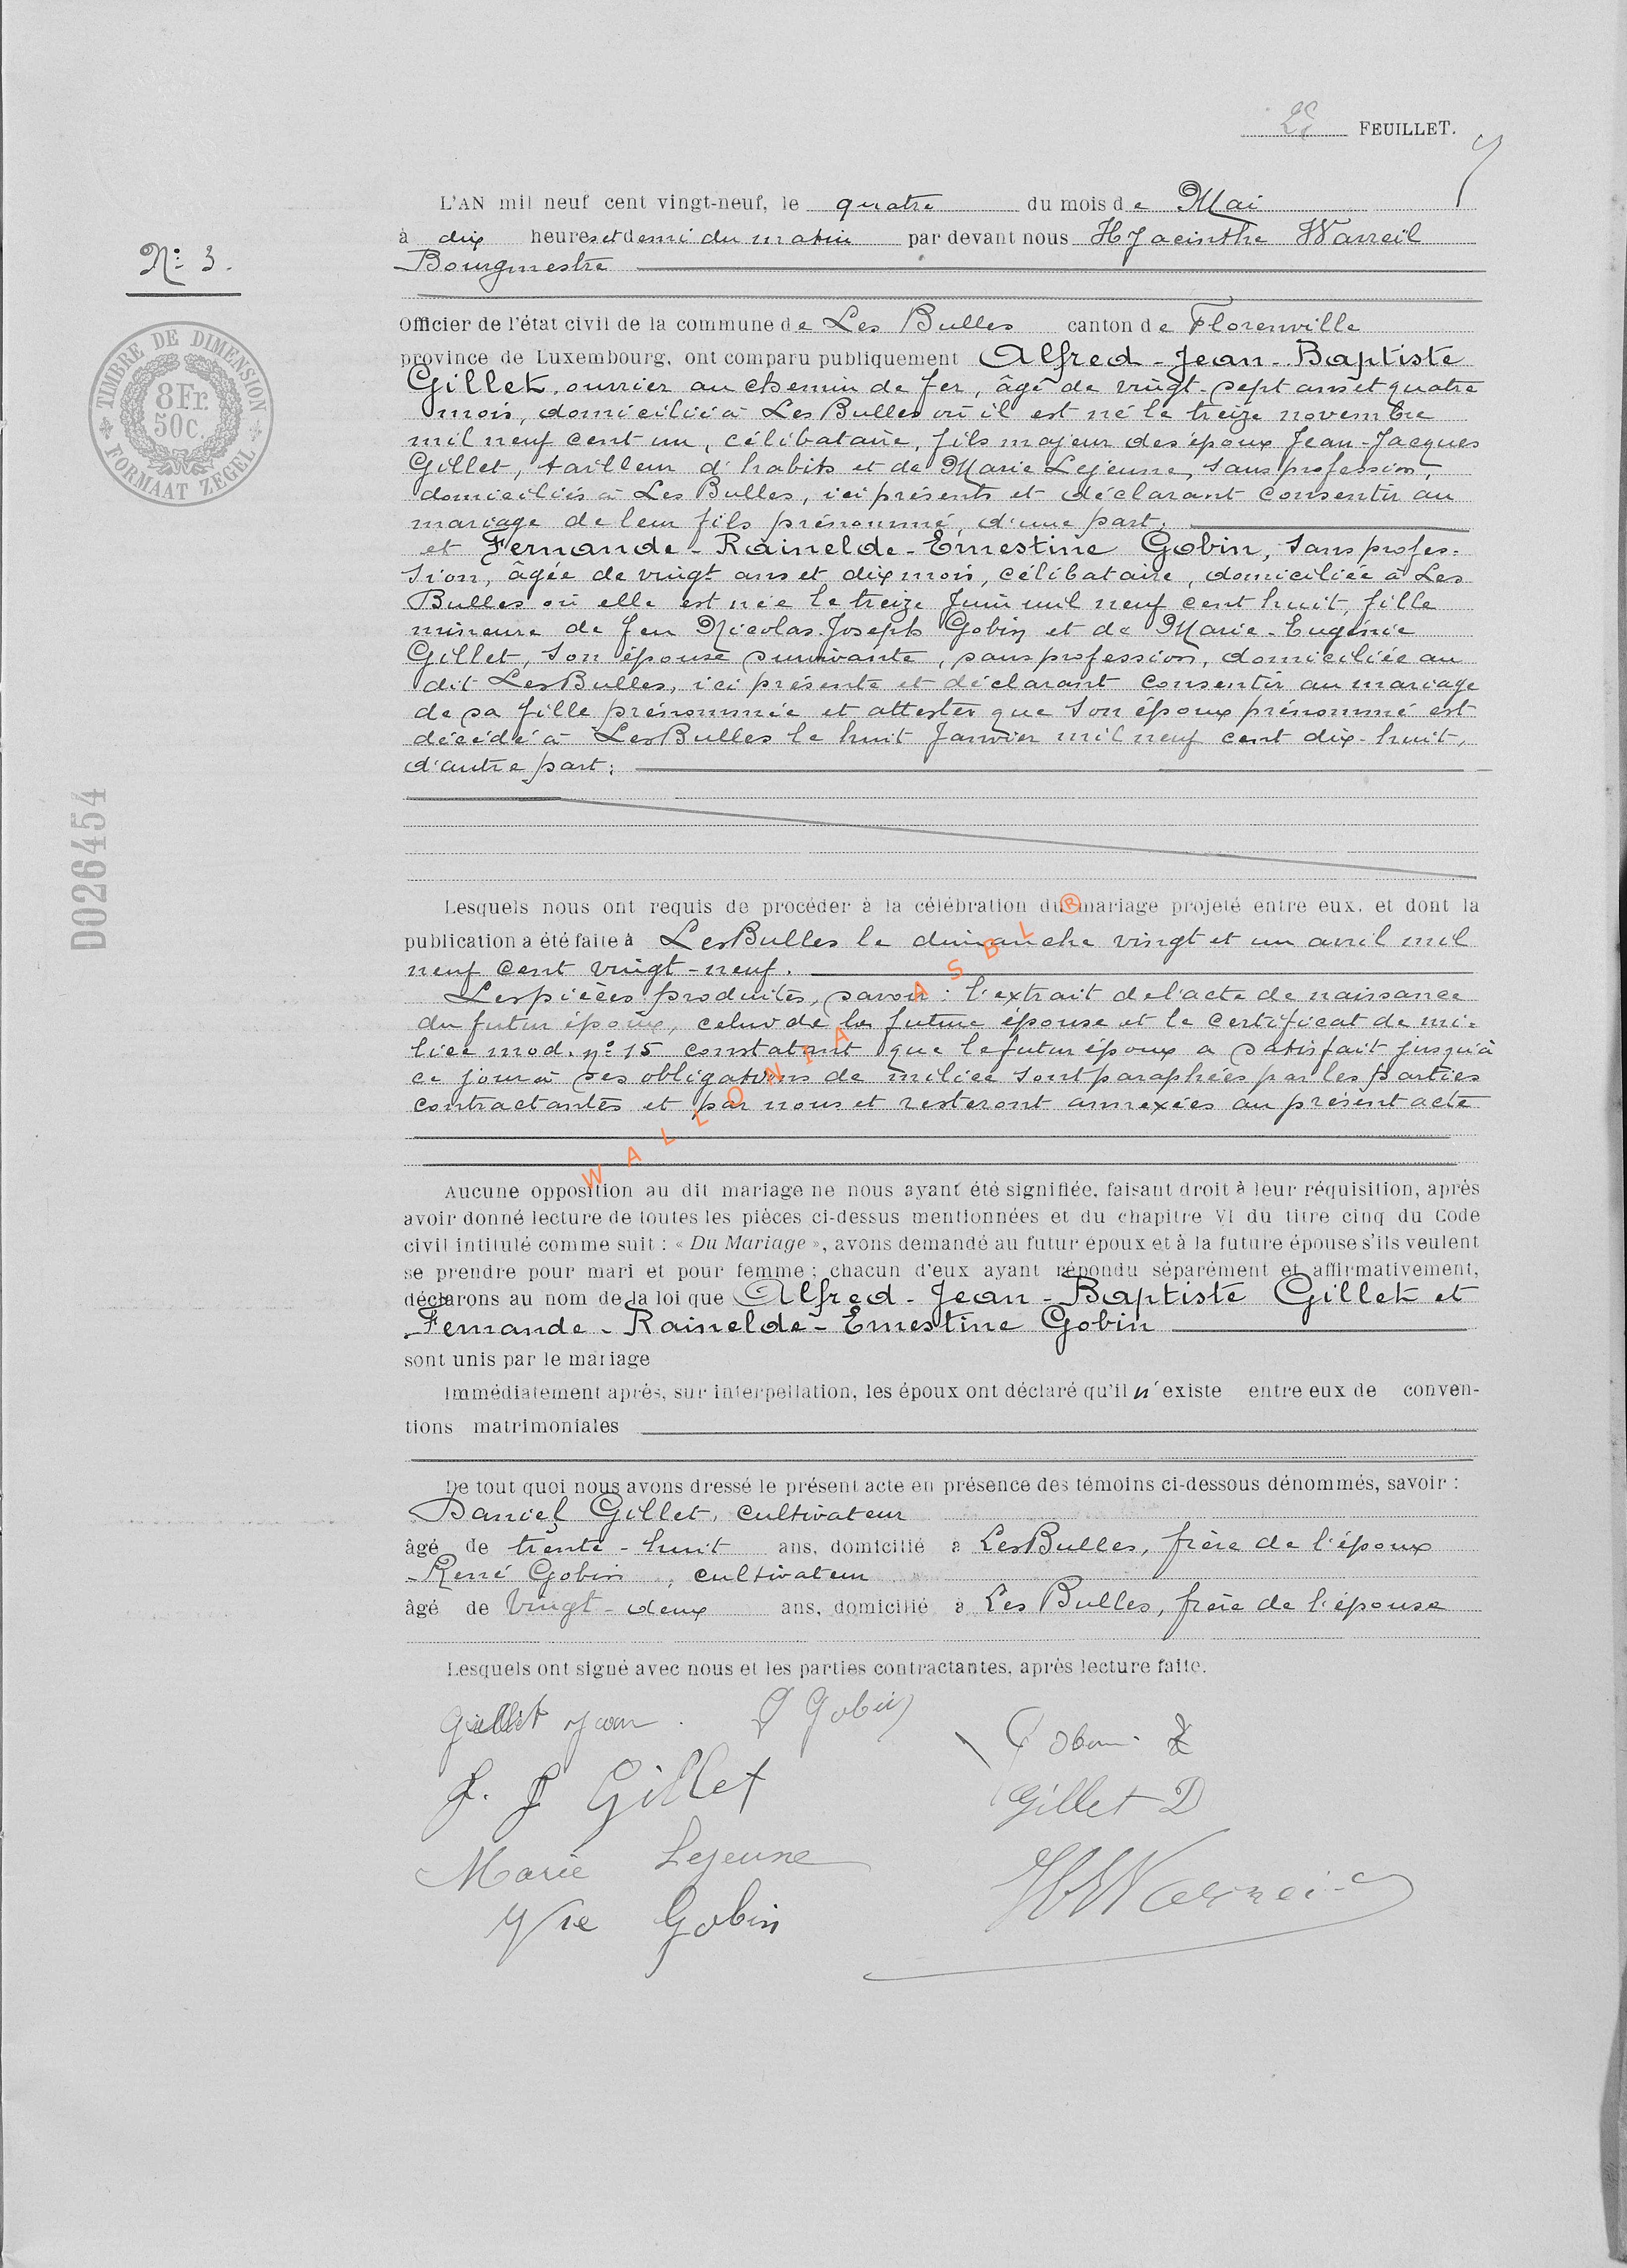 2e FEUILLET.
L'AN mil neuf cent vingt-neuf, le quatre du mois de Mai
à dix heures et demi du matin par devant nous Hyacinthe Warreil
N° 3.
Bourgmestre
Officier de l'état civil de la commune de Les Bulles canton de Florenville
province de Luxembourg, ont comparu publiquement Alfred-Jean-Baptiste
Gillet, ouvrier au chemin de fer, âgé de vingt-sept ans et quatre
mois, domicilié à Les Bulles où il est né le treize novembre
mil neuf cent un, célibataire, fils majeur des époux Jean-Jacques
Gillet, tailleur d'habits et de Marie Lejeune, sans profession,
domiciliés à Les Bulles, ici présents et déclarant consentir au
mariage de leur fils prénommé, d'une part,
et Fernande-Rainelde-Ernestine Gobin, sans profes-
sion, âgée de vingt ans et dix mois, célibataire, domiciliée à Les
Bulles où elle est née le treize Juin mil neuf cent huit, fille
mineure de feu Nicolas-Joseph Gobin et de Marie-Eugénie
Gillet, son épouse survivante, sans profession, domiciliée au
dit Les Bulles, ici présente et déclarant consentir au mariage
de sa fille prénommée et attester que son époux prénommé est
décédé à Les Bulles le huit Janvier mil neuf cent dix-huit,
d'autre part;
TIMBRE DE DIMENSION
8 Fr.
50 c.
FORMAAT ZEGEL
D026454
Lesquels nous ont requis de procéder à la célébration du mariage projeté entre eux, et dont la
publication a été faite à Les Bulles le dimanche vingt et un avril mil
neuf cent vingt-neuf.
Les pièces produites, savoir: l'extrait de l'acte de naissance
du futur époux, celui de la future épouse et le certificat de mi-
lice mod. n° 15 constatant que le futur époux a satisfait jusqu'à
ce jour à ses obligations de milice sont paraphées par les parties
contractantes et par nous et resteront annexées au présent acte
WALLONIA ASBL ®
Aucune opposition au dit mariage ne nous ayant été signifiée, faisant droit à leur réquisition, après
avoir donné lecture de toutes les pièces ci-dessus mentionnées et du chapitre VI du titre cinq du Code
civil intitulé comme suit : « Du Mariage », avons demandé au futur époux et à la future épouse s'ils veulent
se prendre pour mari et pour femme ; chacun d'eux ayant répondu séparément et affirmativement,
déclarons au nom de la loi que Alfred-Jean-Baptiste Gillet et
Fernande-Rainelde-Ernestine Gobin
sont unis par le mariage
Immédiatement après, sur interpellation, les époux ont déclaré qu'il n'existe entre eux de conven-
tions matrimoniales
De tout quoi nous avons dressé le présent acte en présence des témoins ci-dessous dénommés, savoir :
Daniel Gillet, cultivateur
âgé de trente-huit ans, domicilié à Les Bulles, frère de l'époux
René Gobin, cultivateur
âgé de vingt-deux ans, domicilié à Les Bulles, frère de l'épouse
Lesquels ont signé avec nous et les parties contractantes, après lecture faite.
Gillet Jean. Gobin
J. J Gillet
Gillet D
Marie Lejeune
Vve Gobin